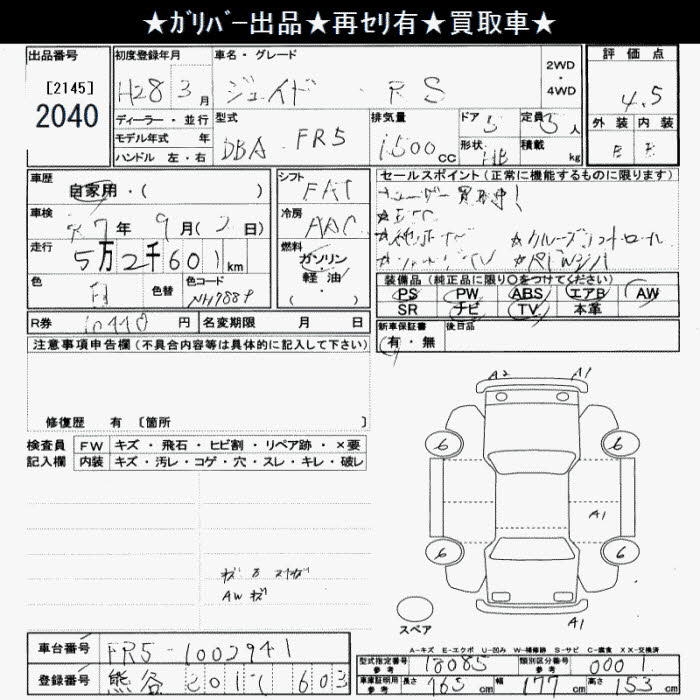 ★ｶﾞﾘﾊﾞｰ出品★再ｾﾘ有★買取車★
出品番号
[2145]
2040
初度登録年月
H28 3 月
車名・グレード
ジェイド ・ RS
2WD
・
4WD
評価点
4.5
外装 内装
ディーラー・並行
モデル年式 年
ハンドル 左・右
型式
DBA FR5
排気量
1500cc
ドア 5
定員 人
形状 HB
積載 kg
車歴
自家用・( )
車検
R7年 9月( 2日)
走行
5万2千601km
色
白
色替
色コード
NH788P
シフト
FAT
冷房
AAC
燃料
ガソリン
軽油
( )
セールスポイント(正常に機能するものに限ります)
ユーザー買取車!
★ETC
★クルーズコントロール
装備品(純正品に限り○をつけてください)
PS PW ABS エアB AW
SR ナビ TV 本革
R券 10440円 名変期限 月 日
新車保証書
有・無
後日品
注意事項申告欄(不具合内容等は具体的に記入して下さい)
修復歴 有 [箇所 ]
検査員
記入欄
FW キズ・飛石・ヒビ割・リペア跡・×要
内装 キズ・汚レ・コゲ・穴・スレ・キレ・破レ
AWキズ
A2 A1
6 6
A1
6 6
A1
スペア
A-キズ E-エクボ U-凹み W-補修跡 S-サビ C-腐食 XX-交換済
車台番号 FR5-1002941
登録番号 熊谷 301 603
型式指定番号
参考
18085
類別区分番号
参考
0001
車庫証明用
参考
長さ 465cm 幅 177cm 高さ 153cm